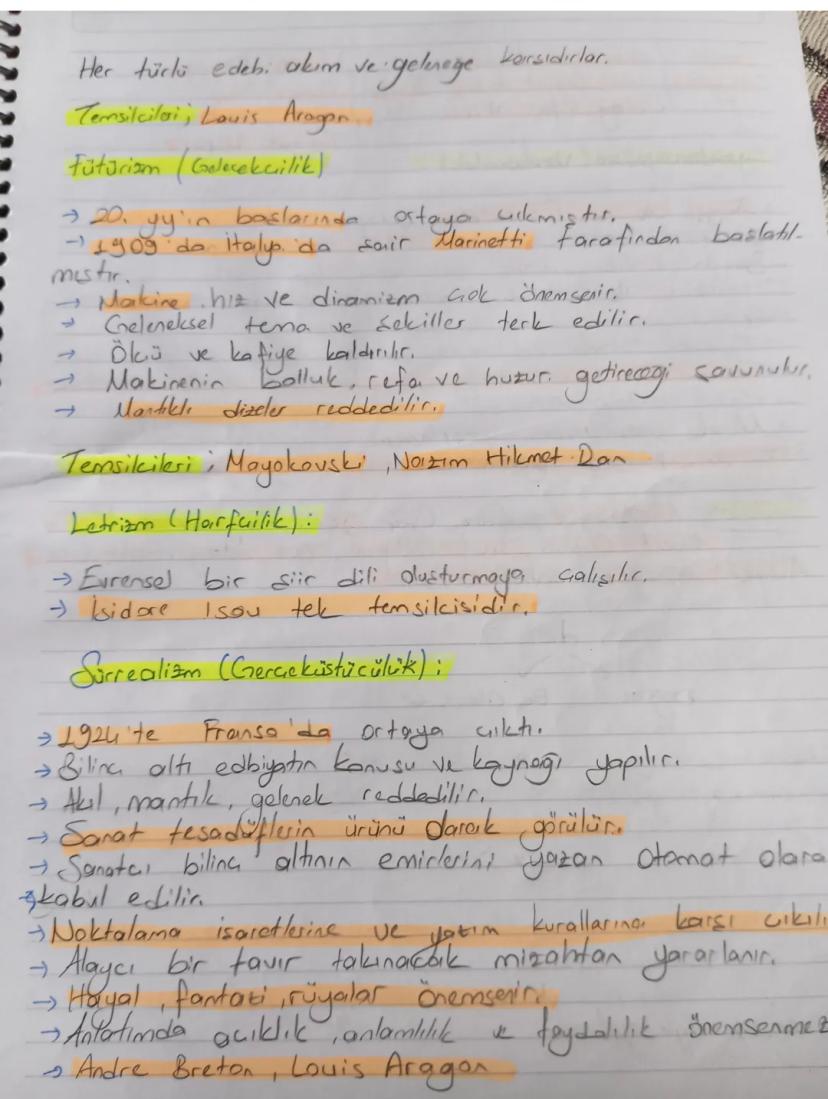 Her türlü edebi akım ve geleneğe karşıdırlar.
Temsilcileri; Louis Aragon
Fütürizm (Gelecekcilik)
→ 20. yy'ın başlarında ortaya çıkmıştır.
→ 1909'da İtalya'da şair Marinetti tarafından başlatıl-
mıştır.
→ Makine, hız ve dinamizm çok önemsenir.
→ Geleneksel tema ve şekiller terk edilir.
→ Ölçü ve kafiye kaldırılır.
→ Makinenin bolluk, refa ve huzur getireceği savunulur.
→ Mantıklı dizeler reddedilir.
Temsilcileri; Mayokovski, Nazım Hikmet Ran
Letrizm (Harfçilik):
→ Evrensel bir şiir dili oluşturmaya çalışılır.
→ İsidore Isou tek temsilcisidir.
Sürrealizm (Gerçeküstücülük):
→ 1924'te Fransa'da ortaya çıktı.
→ Bilinç altı edbiyatın konusu ve kaynağı yapılır.
→ Akıl, mantık, gelenek reddedilir.
→ Sanat tesadüflerin ürünü olarak görülür.
→ Sanatçı bilinç altının emirlerini yazan otomat olara
→ kabul edilir.
→ Noktalama işaretlerine ve yazım kurallarına karşı çıkılı
→ Alaycı bir tavır takınarak mizahtan yararlanır.
→ Hayal, fantazi, rüyalar önemsenir.
→ Anlatımda açıklık, anlamlılık ve faydalılık önemsenmez
→ Andre Breton, Louis Aragon